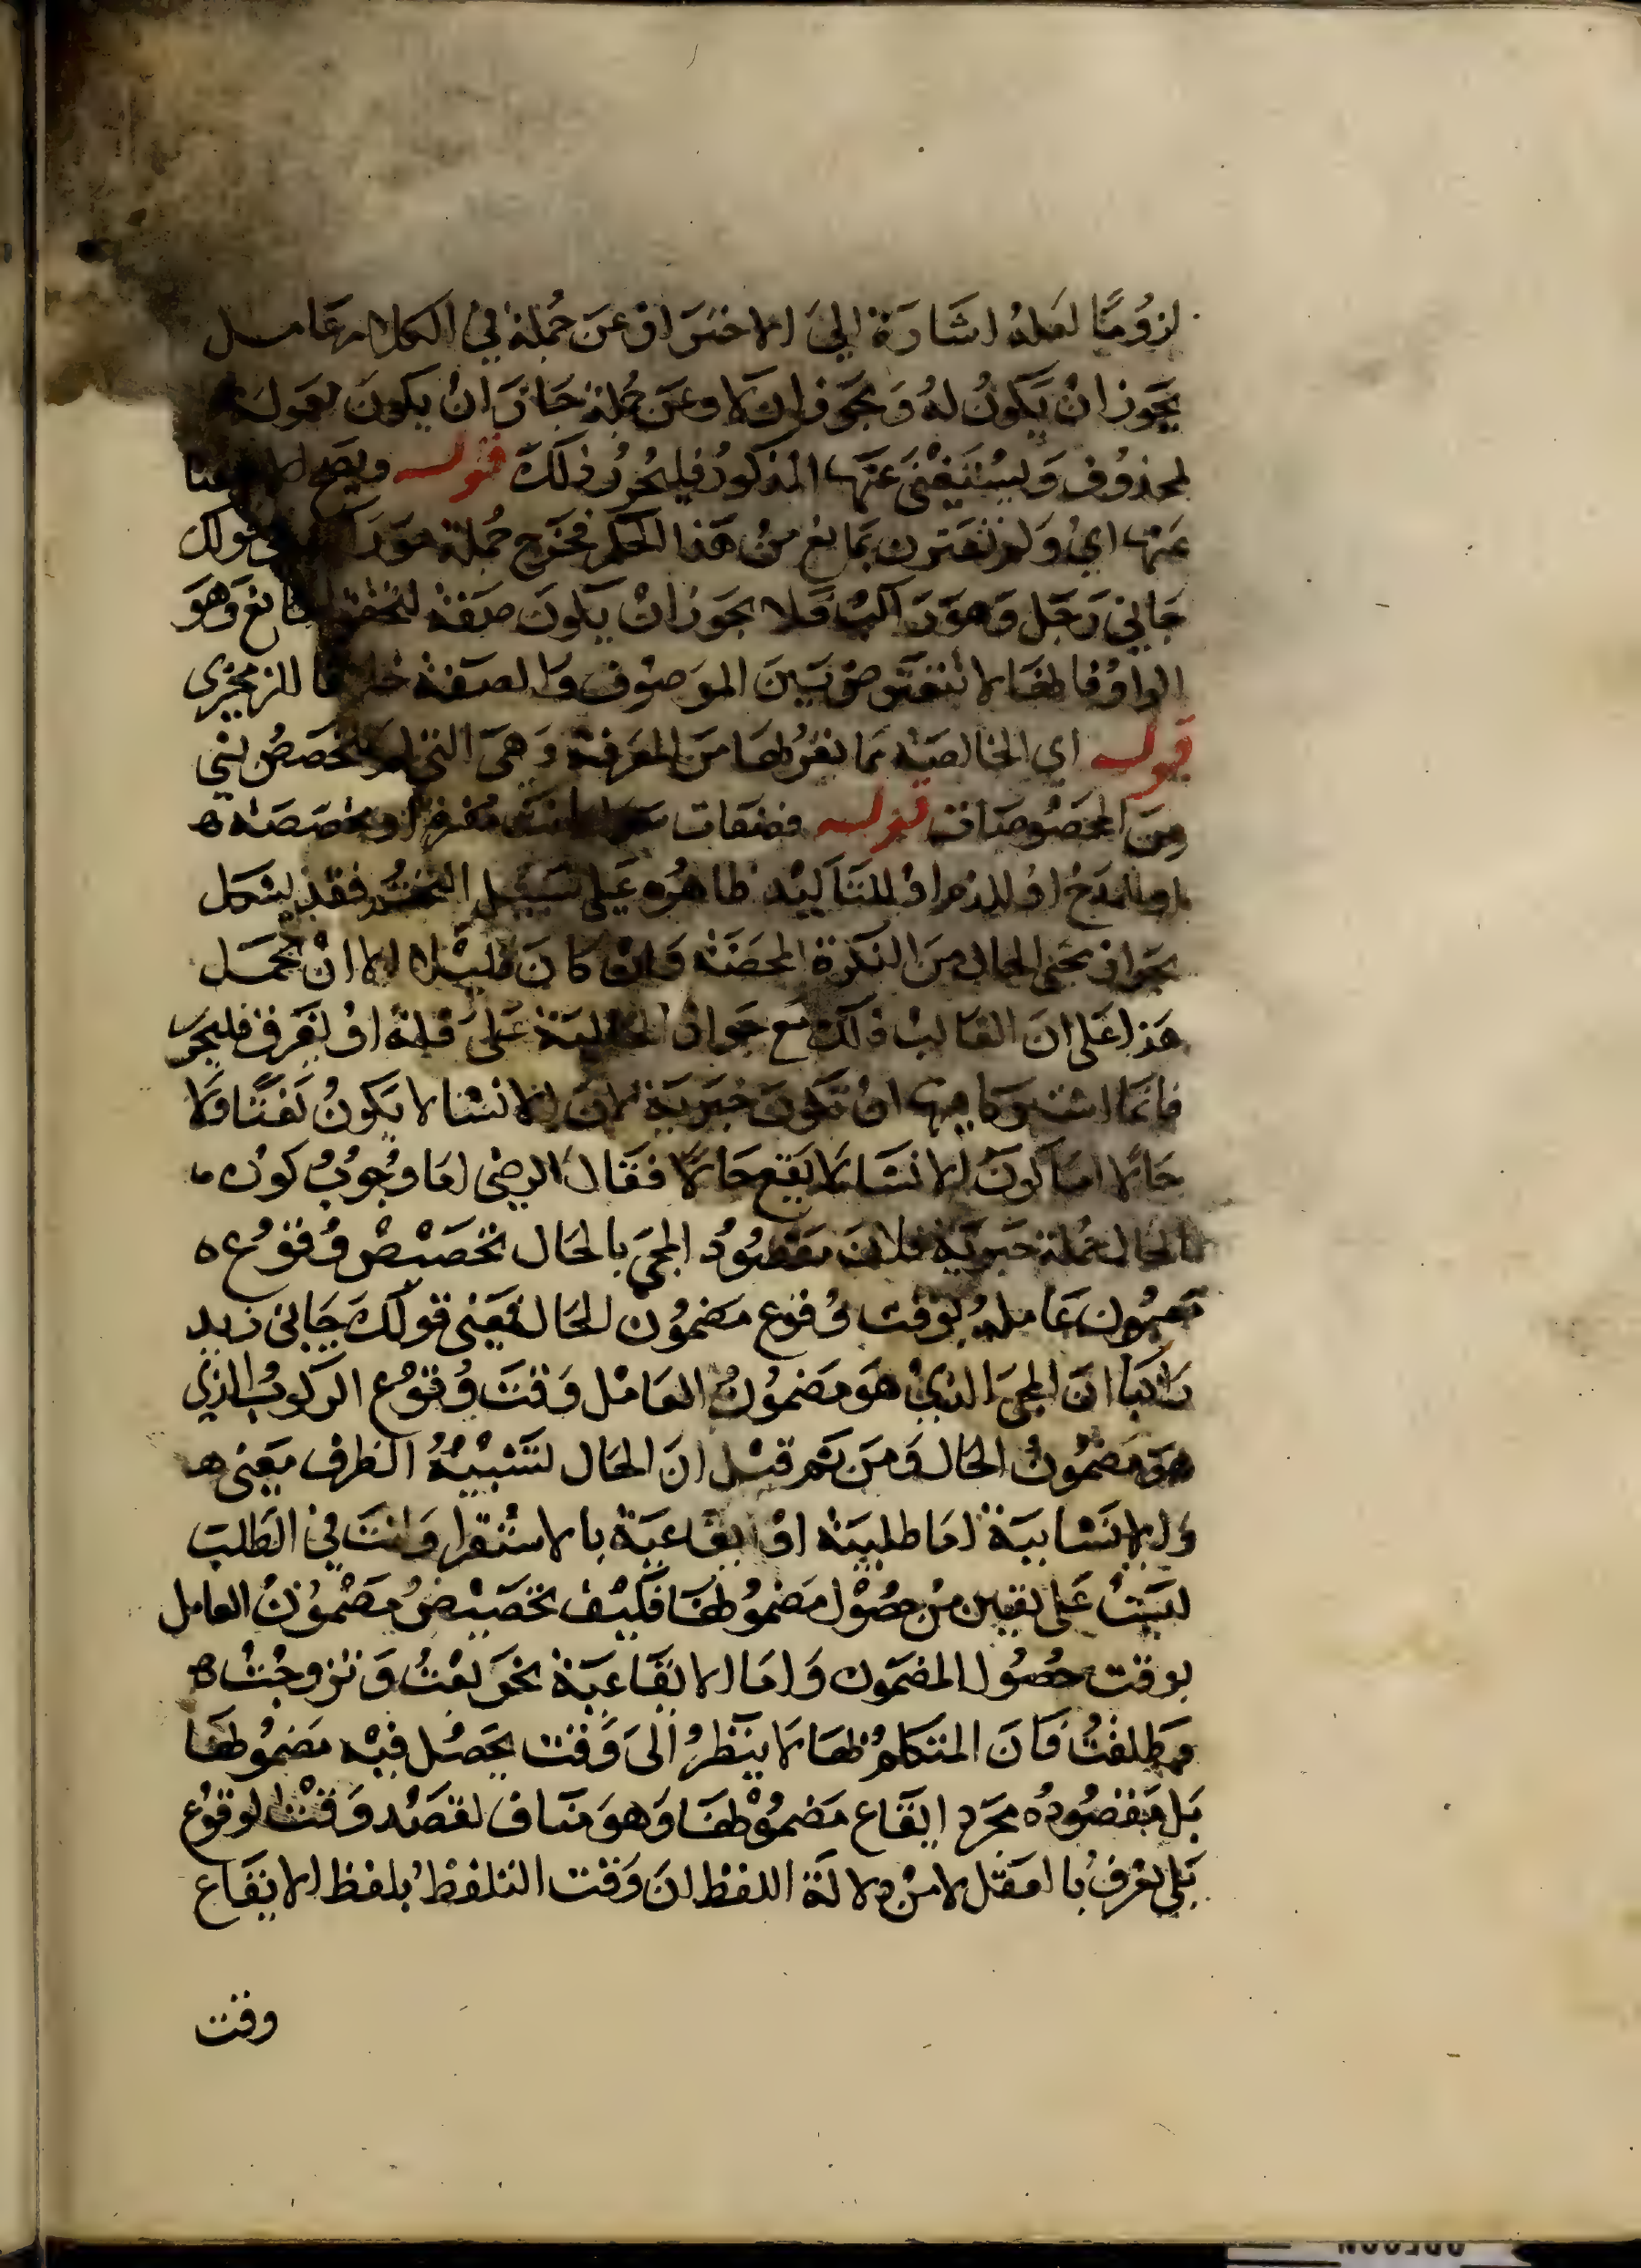 لزومًا لعله اشارة الى الاحتراز عن جملة في الكلام عامل
يجوز ان يكون له ويجوز ان لا وعن جملة جاز ان يكون لعموله
لمحذوف وليستغنى عنها المذكور فليحرر ذلك قوله ويصح
عنها اي ولم تقترن بمانع من هذا الحكم فخرج جملة هو في قولك
جاني رجل وهو راكب فلا يجوز ان يكون صفة وهو
الواو فانها لا تتعترض بين الموصوف والصفة خلافا للزمخشري
قوله اي الخالصة مما يقربها من المعرفة وهي التي لم تخصص بشي
من المخصوصات قوله فصفات او مخصصة ه
او للمدح او للذم او للتاكيد ظاهره على سبيل فقد يشكل
بجواز مجي الحال من النكرة المحضة وان كان قليلا الا ان يحمل
هذا على ان الغالب ذلك مع جواز الحالية على قلة او يفرق فليحرر
فانما اشترطا فيها ان تكون خبرية لان الانشا لا يكون نعتا ولا
حالا اما كون الانشا لا يقع حالا فقال الرضى اما وجوب كون ما
الحال جملة خبرية فلان مقصود المجي بالحال تخصيص وقوع ه
مضمون عامله بوقت وقوع مضمون الحال فمعنى قولك جانى زيد
راكبا ان المجي الذي هو مضمون العامل وقت وقوع الركوب الذي
هو مضمون الحال ومن ثم قيل ان الحال لتشبيه الظرف معنى ه
والانشايية اما طلبية او ايقاعية بالاستقرا وانت في الطلب
ليست على يقين من حصول مضمونها فكيف تخصيص مضمون العامل
بوقت حصول المضمون واما الايقاعية نحو بعت وتزوجت ه
وطلقت فان المتكلم بها لا ينظر الى وقت يحصل فيه مضمونها
بل مقصوده مجرد ايقاع مضمونها وهو مناف لقصد وقت لوقوع
بلى يعرف با امقل لا من دلالة اللفظ ان وقت التلفظ بلفظ الايقاع
وقت